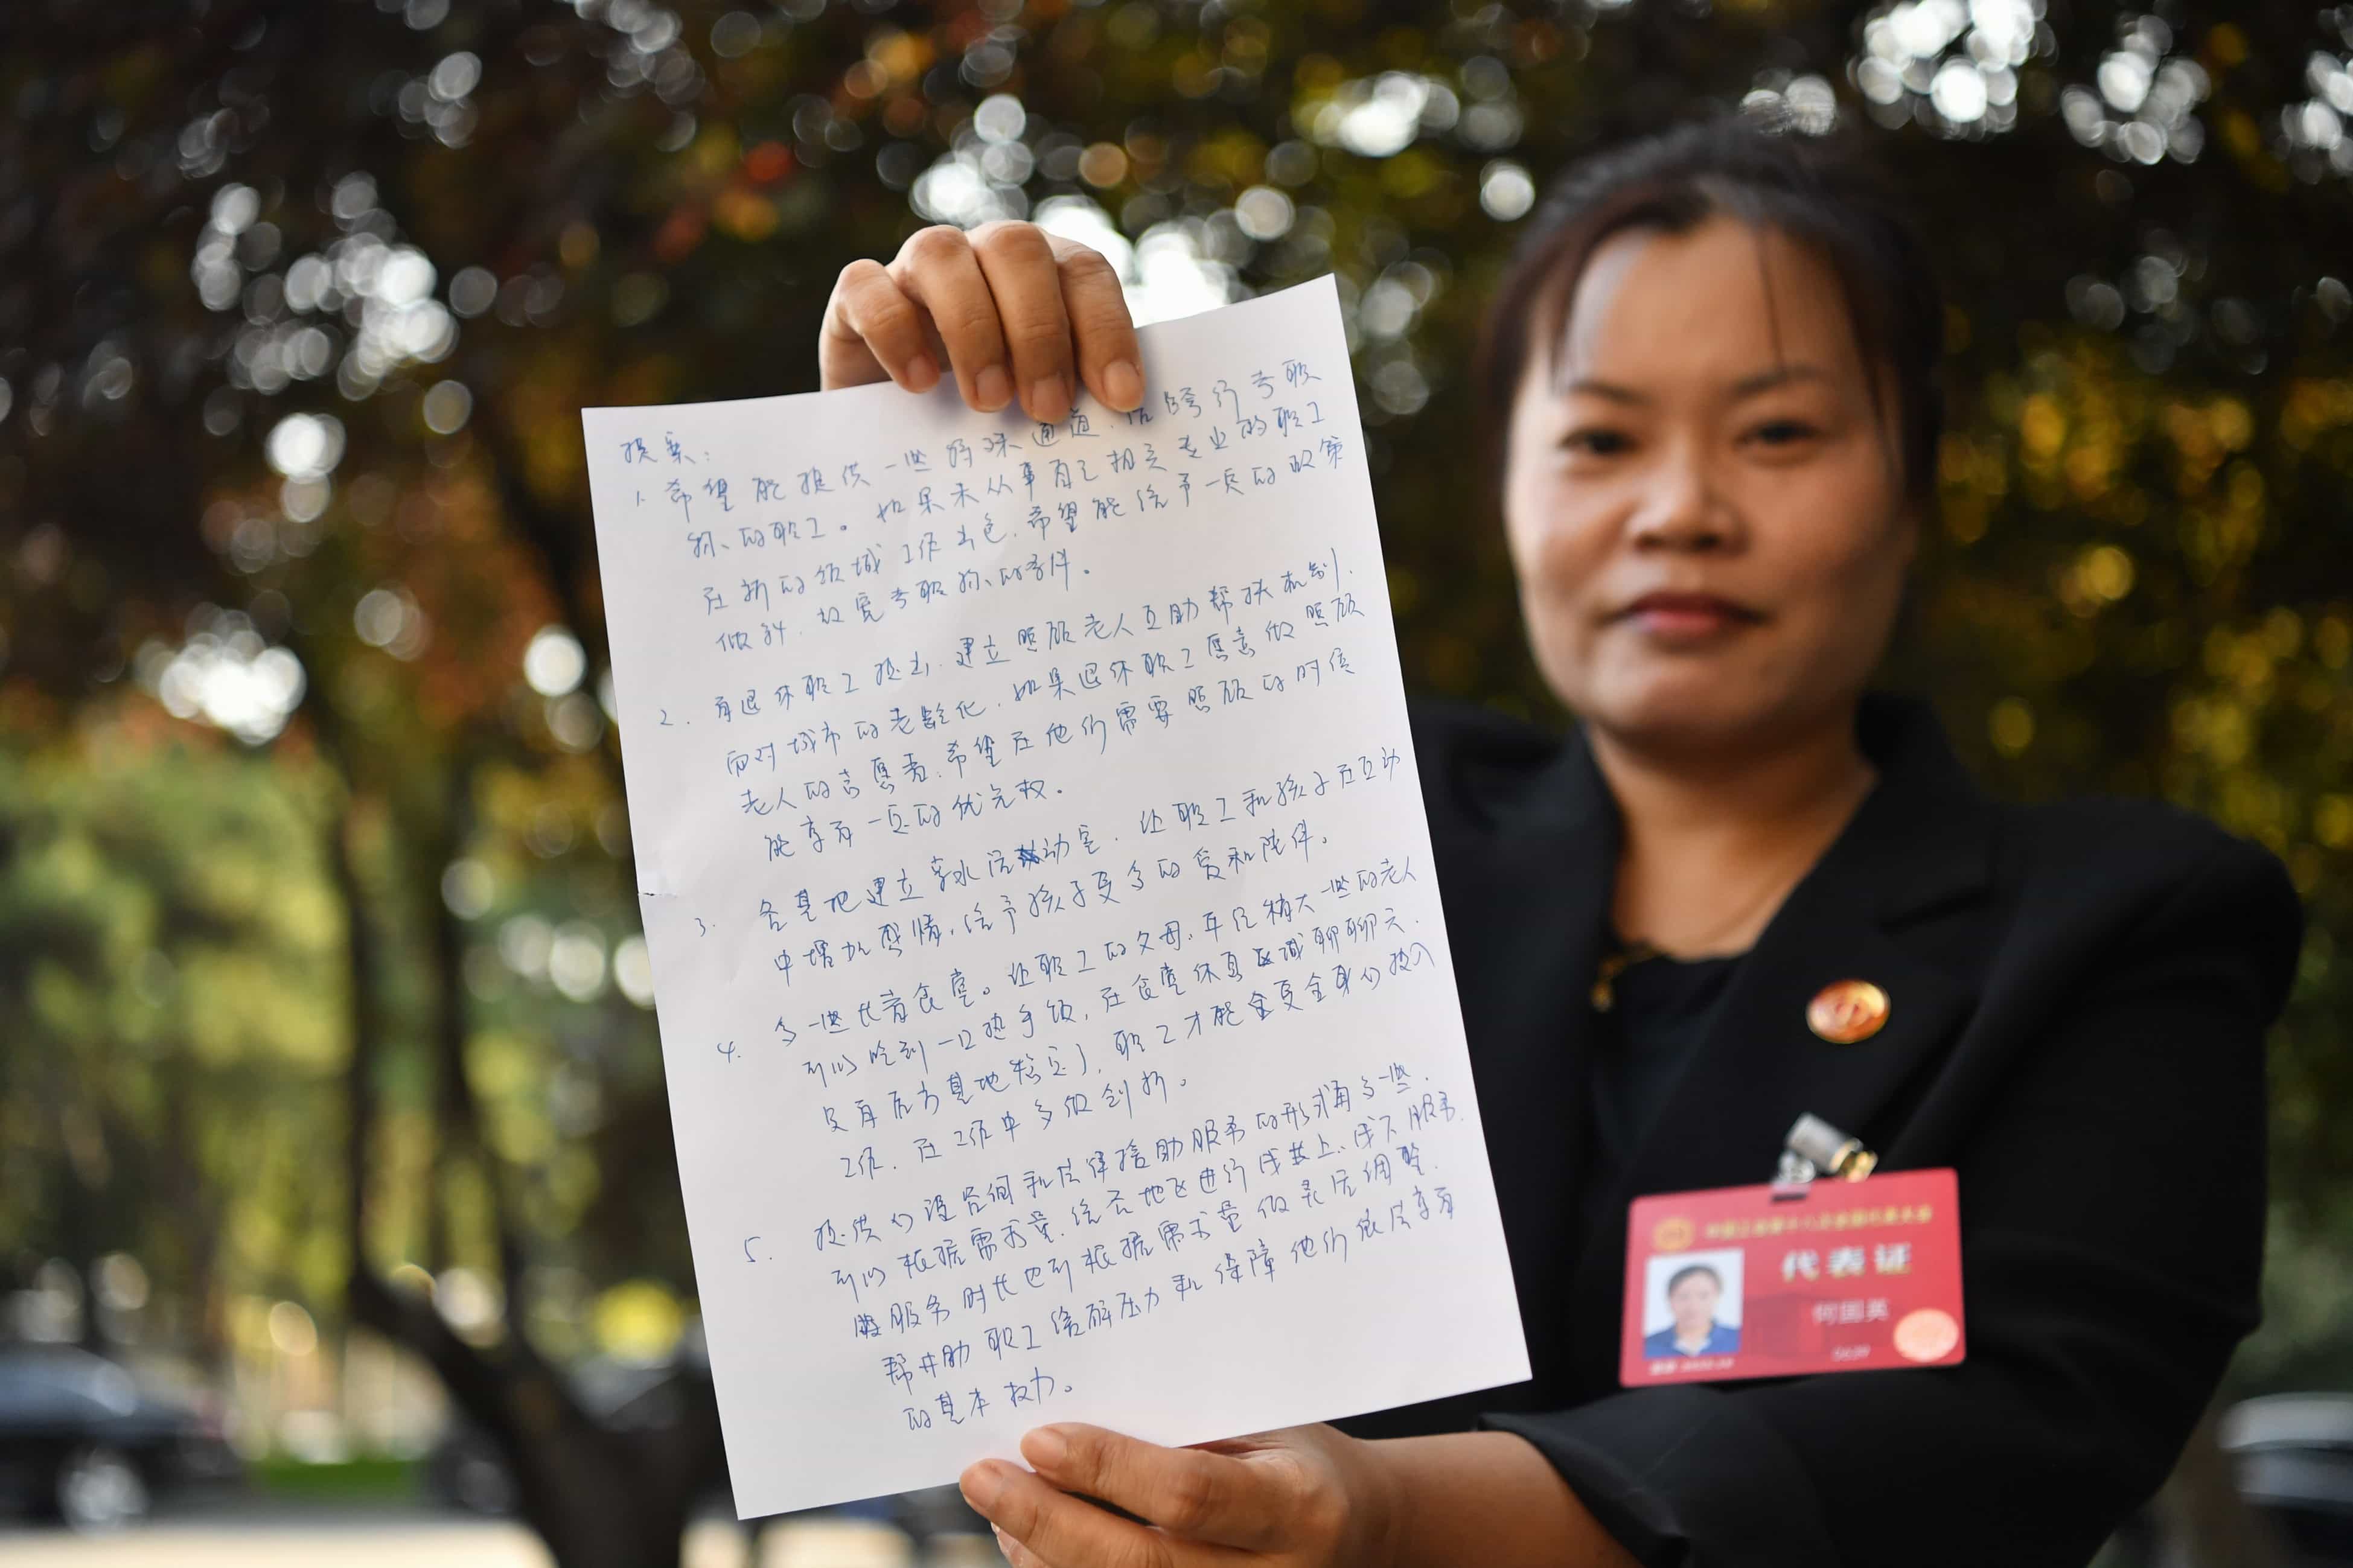 提案：
1、希望能提供一些特殊通道，给跨行考职
称的职工。如果未从事自己相关专业的职工
在新的领域工作出色，希望能给予一定的政策
倾斜，放宽考职称的条件。
2. 有退休职工提出，建立照顾老人互助帮扶机制，
面对城市的老龄化，如果退休职工愿意做照顾
老人的志愿者，希望在他们需要照顾的时候
能享有一定的优先权。
3. 各基地建立亲水活动室，让职工和孩子在互动
中增加感情，给予孩子更多的爱和陪伴。
4. 多一些长者食堂。让职工的父母，年纪稍大一些的老人
可以吃到一口热乎饭，在食堂休息区域聊聊天，
只有后方基地稳定了，职工才能全身心投入
工作，在工作中多做创新。
5. 提供心理咨询和法律援助服务的形式再多一些，
可以根据需求量，结合地区进行线上、线下服务，
服务时长也可根据需求量做灵活调整，
帮助职工缓解压力和保障他们依法享有
的基本权力。
代表证
何国英